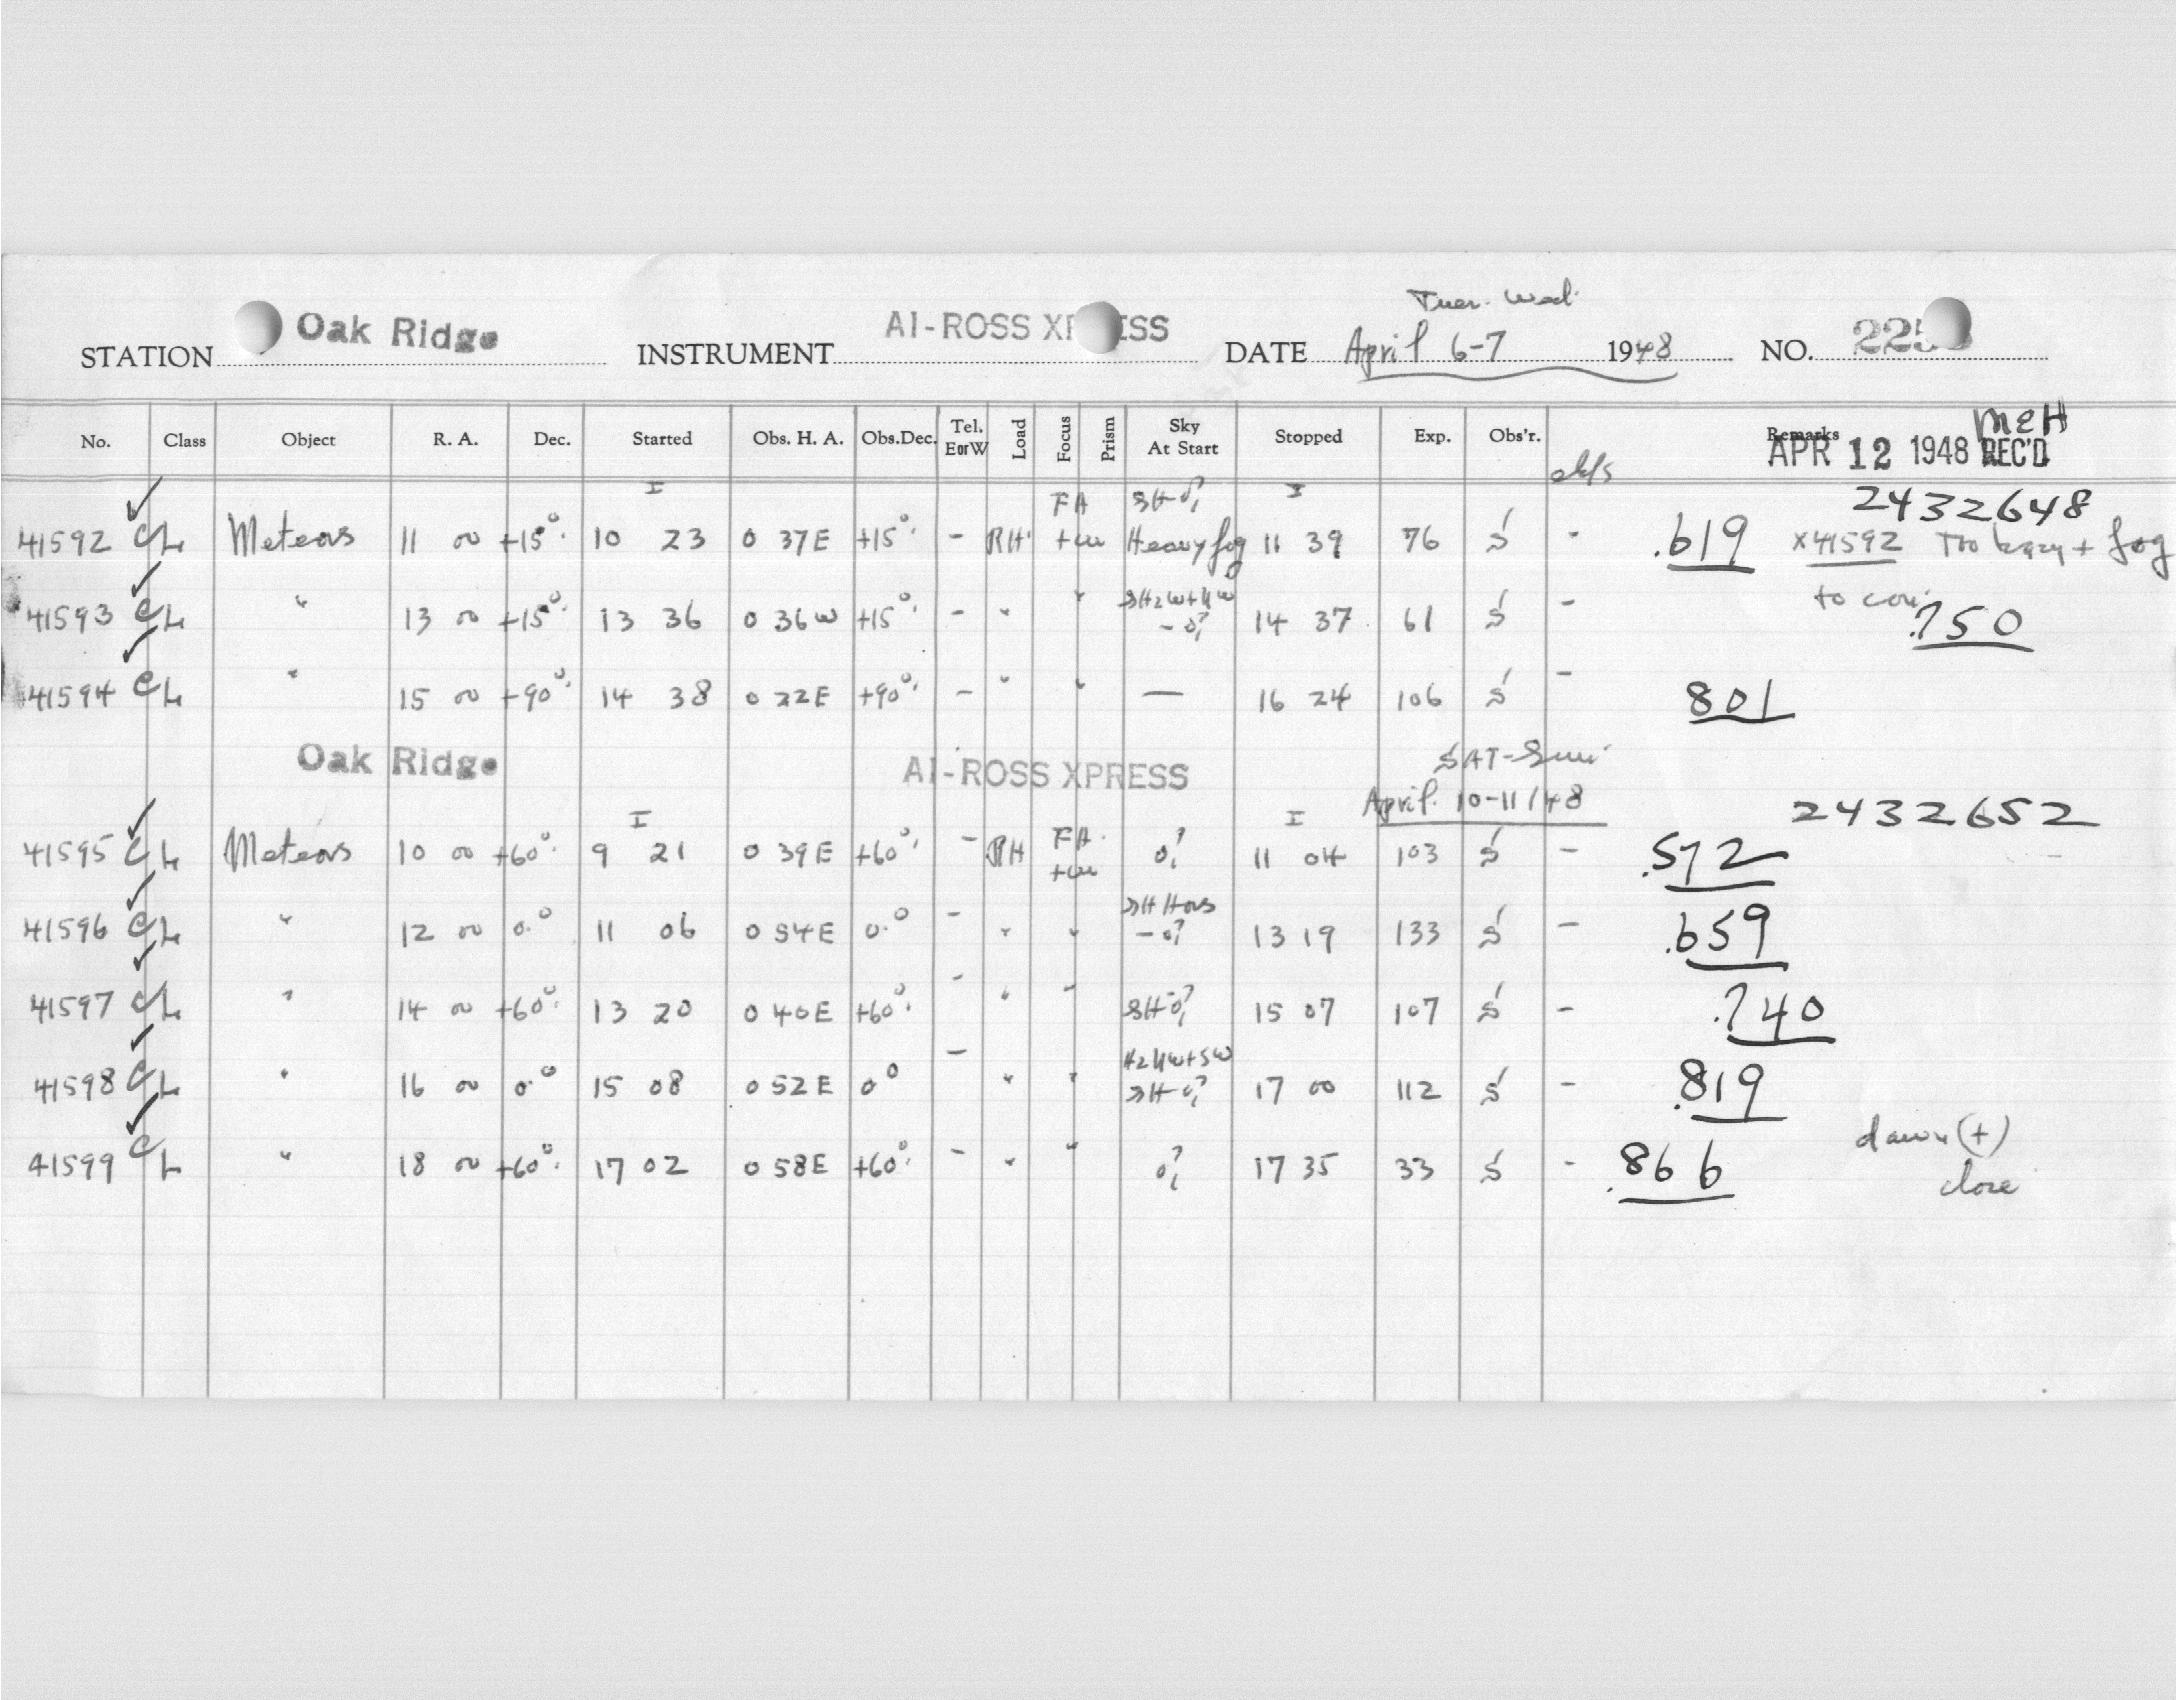 Tues. Wed.
STATION Oak Ridge INSTRUMENT AI-ROSS XPRESS DATE April 6-7 1948 NO. 225
No. Class Object R. A. Dec. Started Obs. H. A. Obs.Dec. Tel. EorW Load Focus Prism Sky At Start Stopped Exp. Obs'r. Remarks
MEH
APR 12 1948 REC'D
I FA I 2432648
41592 CL Meteors 11 00 +15° 10 23 0 37E +15° - RH Heavy fog 11 39 76 S - .619 x41592 Too hazy + fog
41593 CL " 13 00 +15° 13 36 0 36W +15° - " " 14 37 61 S - to .750
41594 CL " 15 00 +90° 14 38 0 22E +90° - " " — 16 24 106 S - 801
Oak Ridge AI-ROSS XPRESS SAT-Sun.
April 10-11/48 2432652
I FA I
41595 CL Meteors 10 00 +60° 9 21 0 39E +60° - RH 11 04 103 S - .572
41596 CL " 12 00 0° 11 06 0 54E 0° - " " 13 19 133 S - .659
41597 CL " 14 00 +60° 13 20 0 40E +60° - " " 15 07 107 S - .740
41598 CL " 16 00 0° 15 08 0 52E 0° - " " 17 00 112 S - .819
41599 CL " 18 00 +60° 17 02 0 58E +60° - " " 17 35 33 S - .866 dawn (+)
close